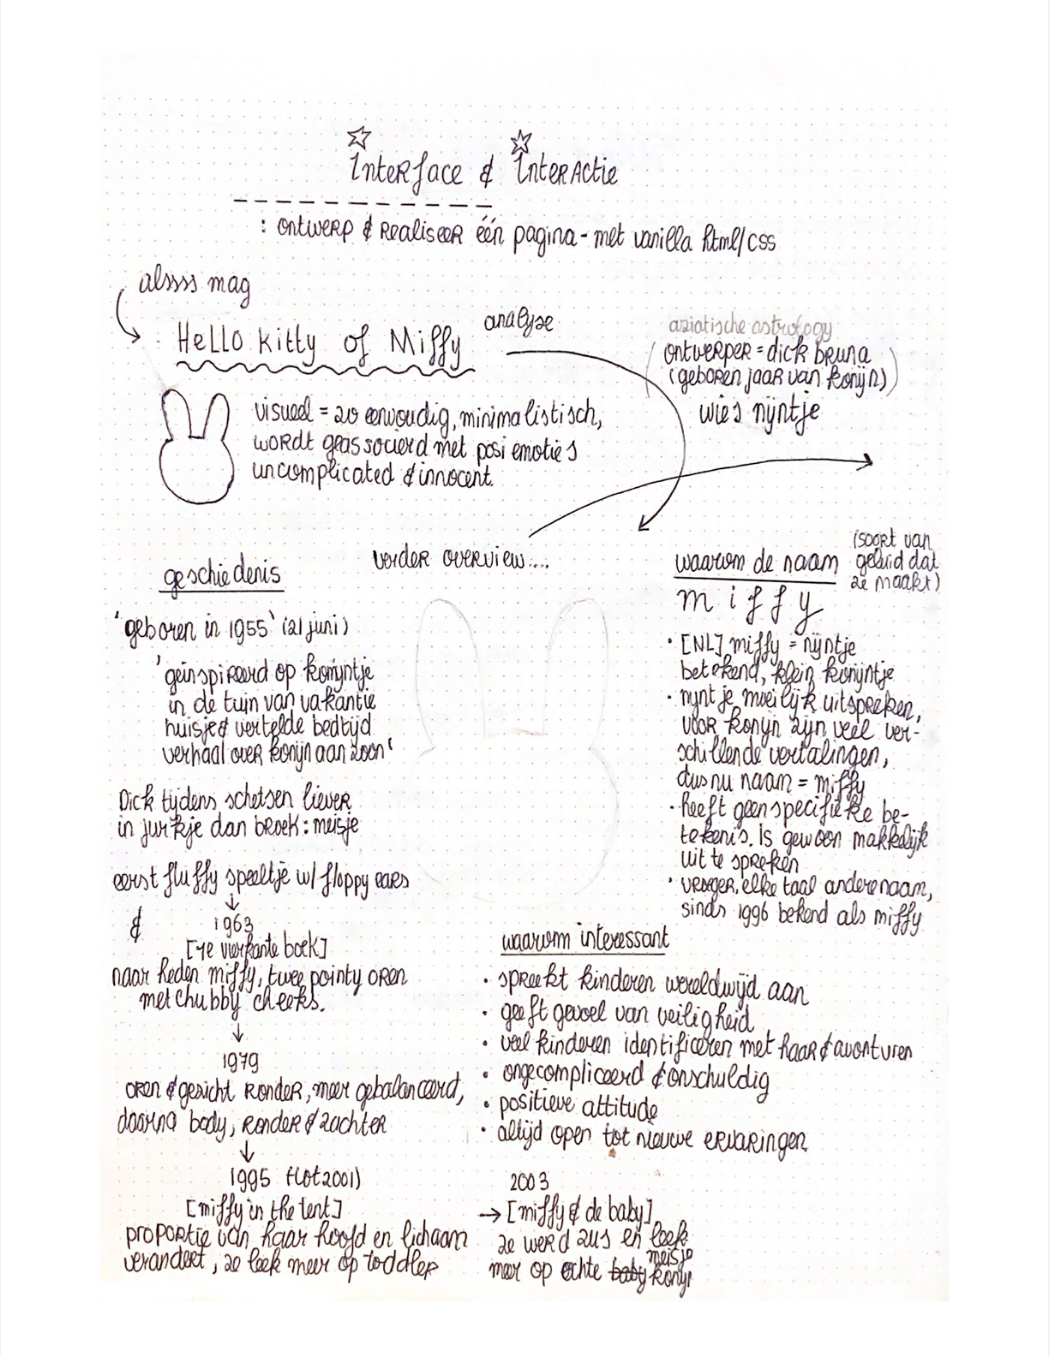 Interface & Interactie
: ontwerp & realiseer één pagina - met vanilla html/css
alssss mag
Hello kitty of Miffy
analyse
visueel = zo eenvoudig, minimalistisch,
wordt geassocieerd met posi emoties
uncomplicated & innocent.
aziatische astrology
(ontwerper = dick bruna
(geboren jaar van konijn))
wie is nijntje
verder overview....
geschiedenis
'geboren in 1955' (21 juni)
'geïnspireerd op konijntje
in de tuin van vakantie
huisje & vertelde bedtijd
verhaal over konijn aan zoon'
Dick tijdens schetsen liever
in jurkje dan broek: meisje
eerst fluffy speeltje w/ floppy ears
& 1963
[1e vierkante boek]
naar heden miffy, twee pointy oren
met chubby cheeks.
1979
oren & gezicht ronder, meer gebalanceerd,
daarna body, ronder & zachter
1995 (tot 2001)
[miffy in the tent]
proportie van haar hoofd en lichaam
verandert, ze leek meer op toddler
waarom de naam
miffy
(soort van
geluid dat
ze maakt)
• [NL] miffy = nijntje
betekend, klein konijntje
• nijntje moeilijk uitspreken,
voor konijn zijn veel ver-
schillende vertalingen,
dus nu naam = miffy
• heeft geen specifieke be-
tekenis. Is gewoon makkelijk
uit te spreken
• vroeger, elke taal andere naam,
sinds 1996 bekend als miffy
waarom interessant
• spreekt kinderen wereldwijd aan
• geeft gevoel van veiligheid
• veel kinderen identificeren met haar & avonturen
• ongecompliceerd & onschuldig
• positieve attitude
• altijd open tot nieuwe ervaringen
2003
→ [miffy & de baby]
ze werd zus en leek
meer op echte baby meisje konijn